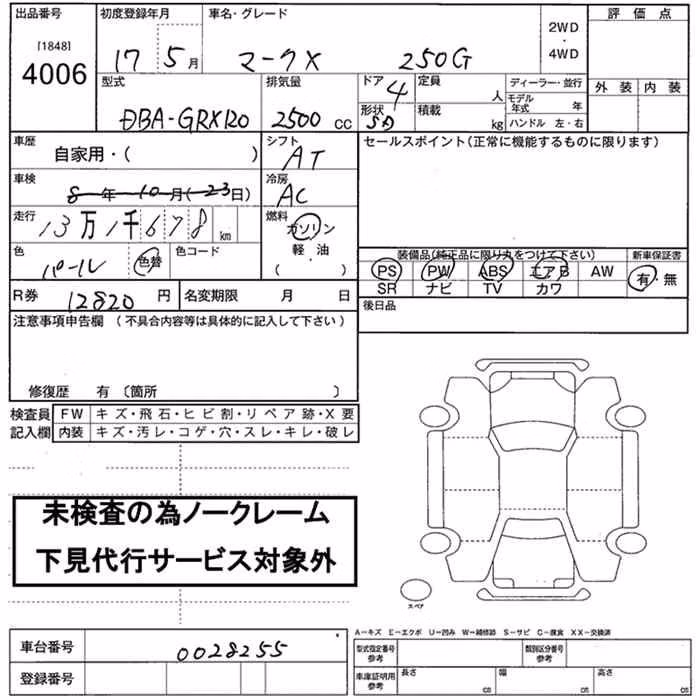 出品番号 初度登録年月 車名・グレード 評価点
[1848] 17 5月 マークX 250G 2WD・4WD
4006
型式 排気量 ドア 4 定員 人 ディーラー・並行 外装 内装
DBA-GRX120 2500 CC 形状 SD 積載 kg モデル年式 年
ハンドル 左・右
車歴 自家用・( ) シフト AT セールスポイント(正常に機能するものに限ります)
車検 8年10月(23日) 冷房 AC
走行 13万1千678 km 燃料 ガソリン
軽・油
( )
色 パール 色替 色コード 装備品(純正品に限り丸をつけて下さい) 新車保証書
PS PW ABS エアB AW 有・無
SR ナビ TV カワ
R券 12820 円 名変期限 月 日 後日品
注意事項申告欄 (不具合内容等は具体的に記入して下さい)
修復歴 有 〔箇所 〕
検査員 FW キズ・飛石・ヒビ割・リペア跡・X要
記入欄 内装 キズ・汚レ・コゲ・穴・スレ・キレ・破レ
未検査の為ノークレーム
下見代行サービス対象外
スペア
A−キズ E−エクボ U−凹み W−補修跡 S−サビ C−腐食 XX−交換済
車台番号 0028255 型式指定番号 参考 類別区分番号 参考
登録番号 車庫証明用 参考 長さ cm 幅 cm 高さ cm